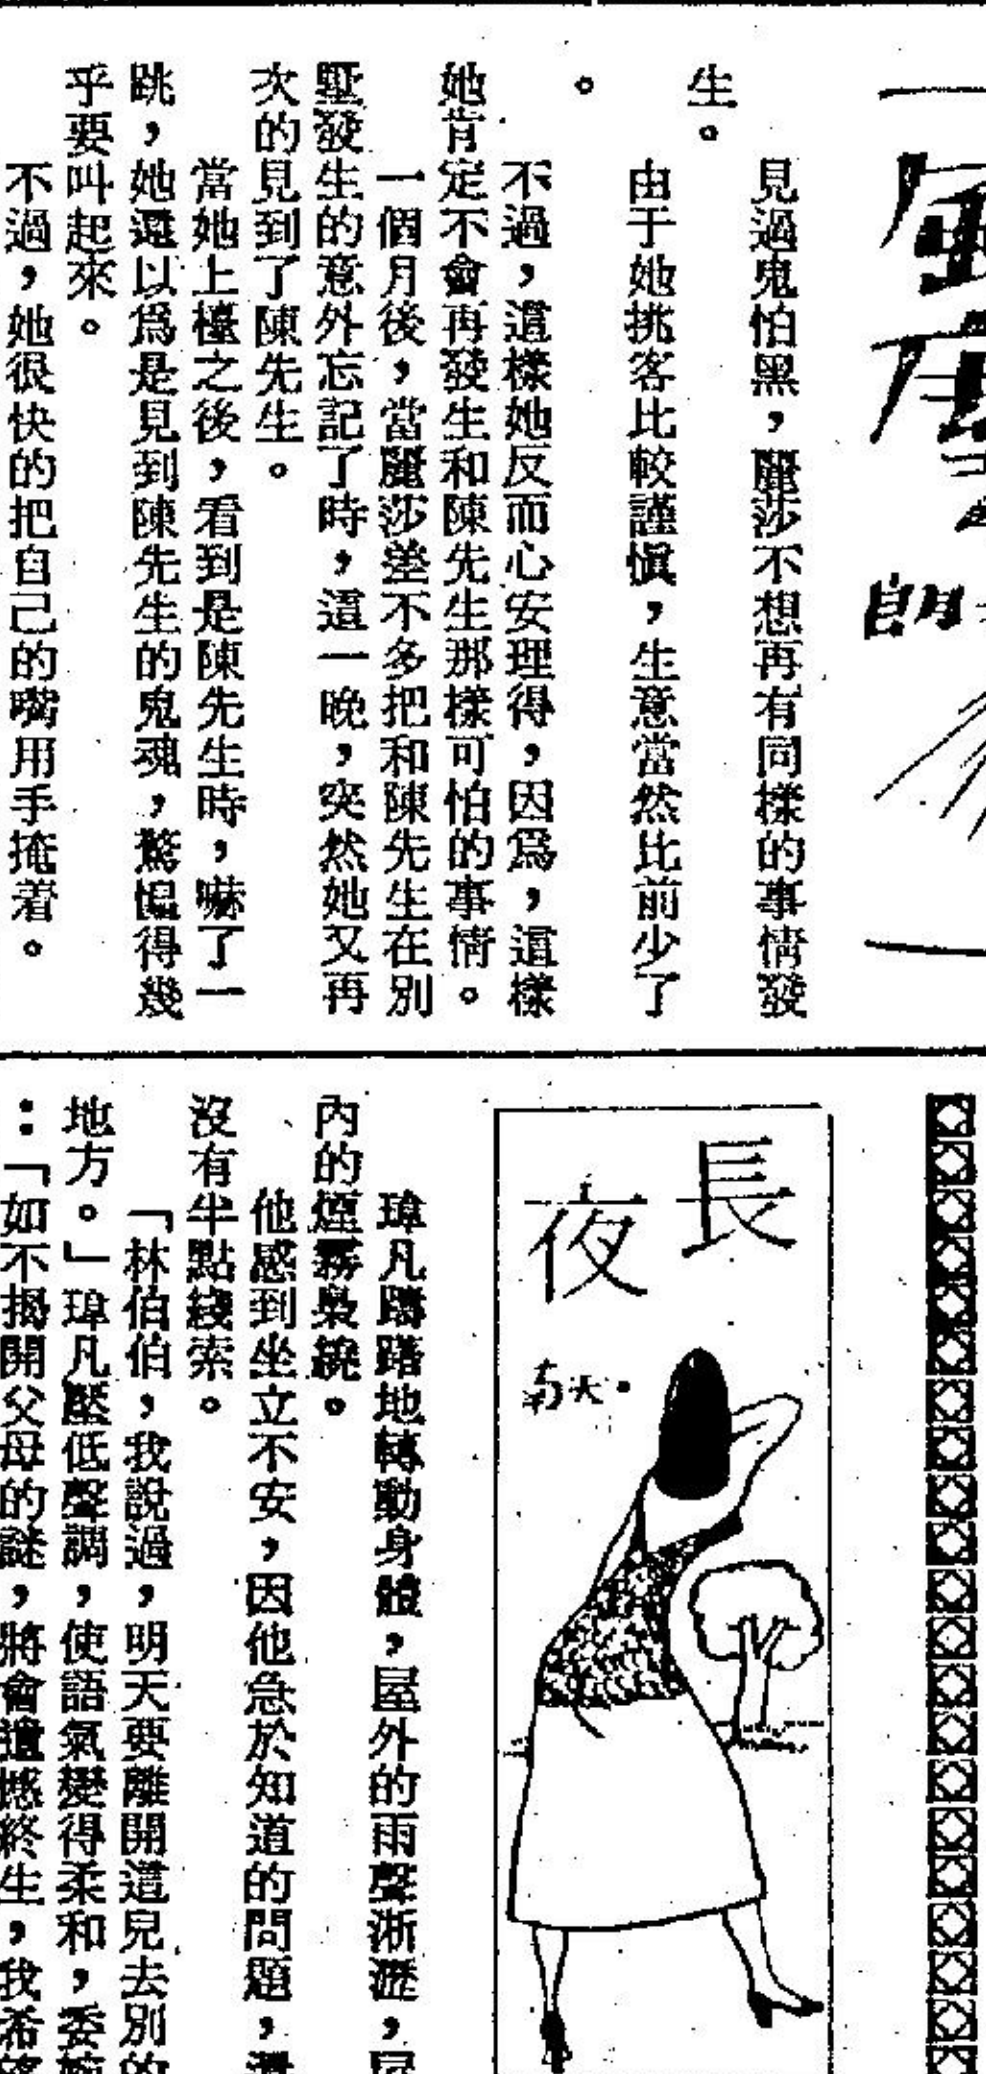 見過鬼怕黑，麗莎不想再有同樣的事情發
生。
由于她挑客比較謹慎，生意當然比前少了
。
不過，這樣她反而心安理得，因爲，這樣
她肯定不會再發生和陳先生那樣可怕的事情。
一個月後，當麗莎差不多把和陳先生在別
墅發生的意外忘記了時，這一晚，突然她又再
次的見到了陳先生。
當她上檯之後，看到是陳先生時，嚇了一
跳，她還以爲是見到陳先生的鬼魂，驚慍得幾
乎要叫起來。
不過，她很快的把自己的嘴用手掩着。
長夜
瑋凡躊躇地轉動身體，屋外的雨聲淅瀝，屋
內的煙霧裊繞。
他感到坐立不安，因他急於知道的問題，還
沒有半點綫索。
「林伯伯，我說過，明天要離開這兒去別的
地方。」瑋凡壓低聲調，使語氣變得柔和，委婉
：「如不揭開父母的謎，將會遺憾終生，我希望